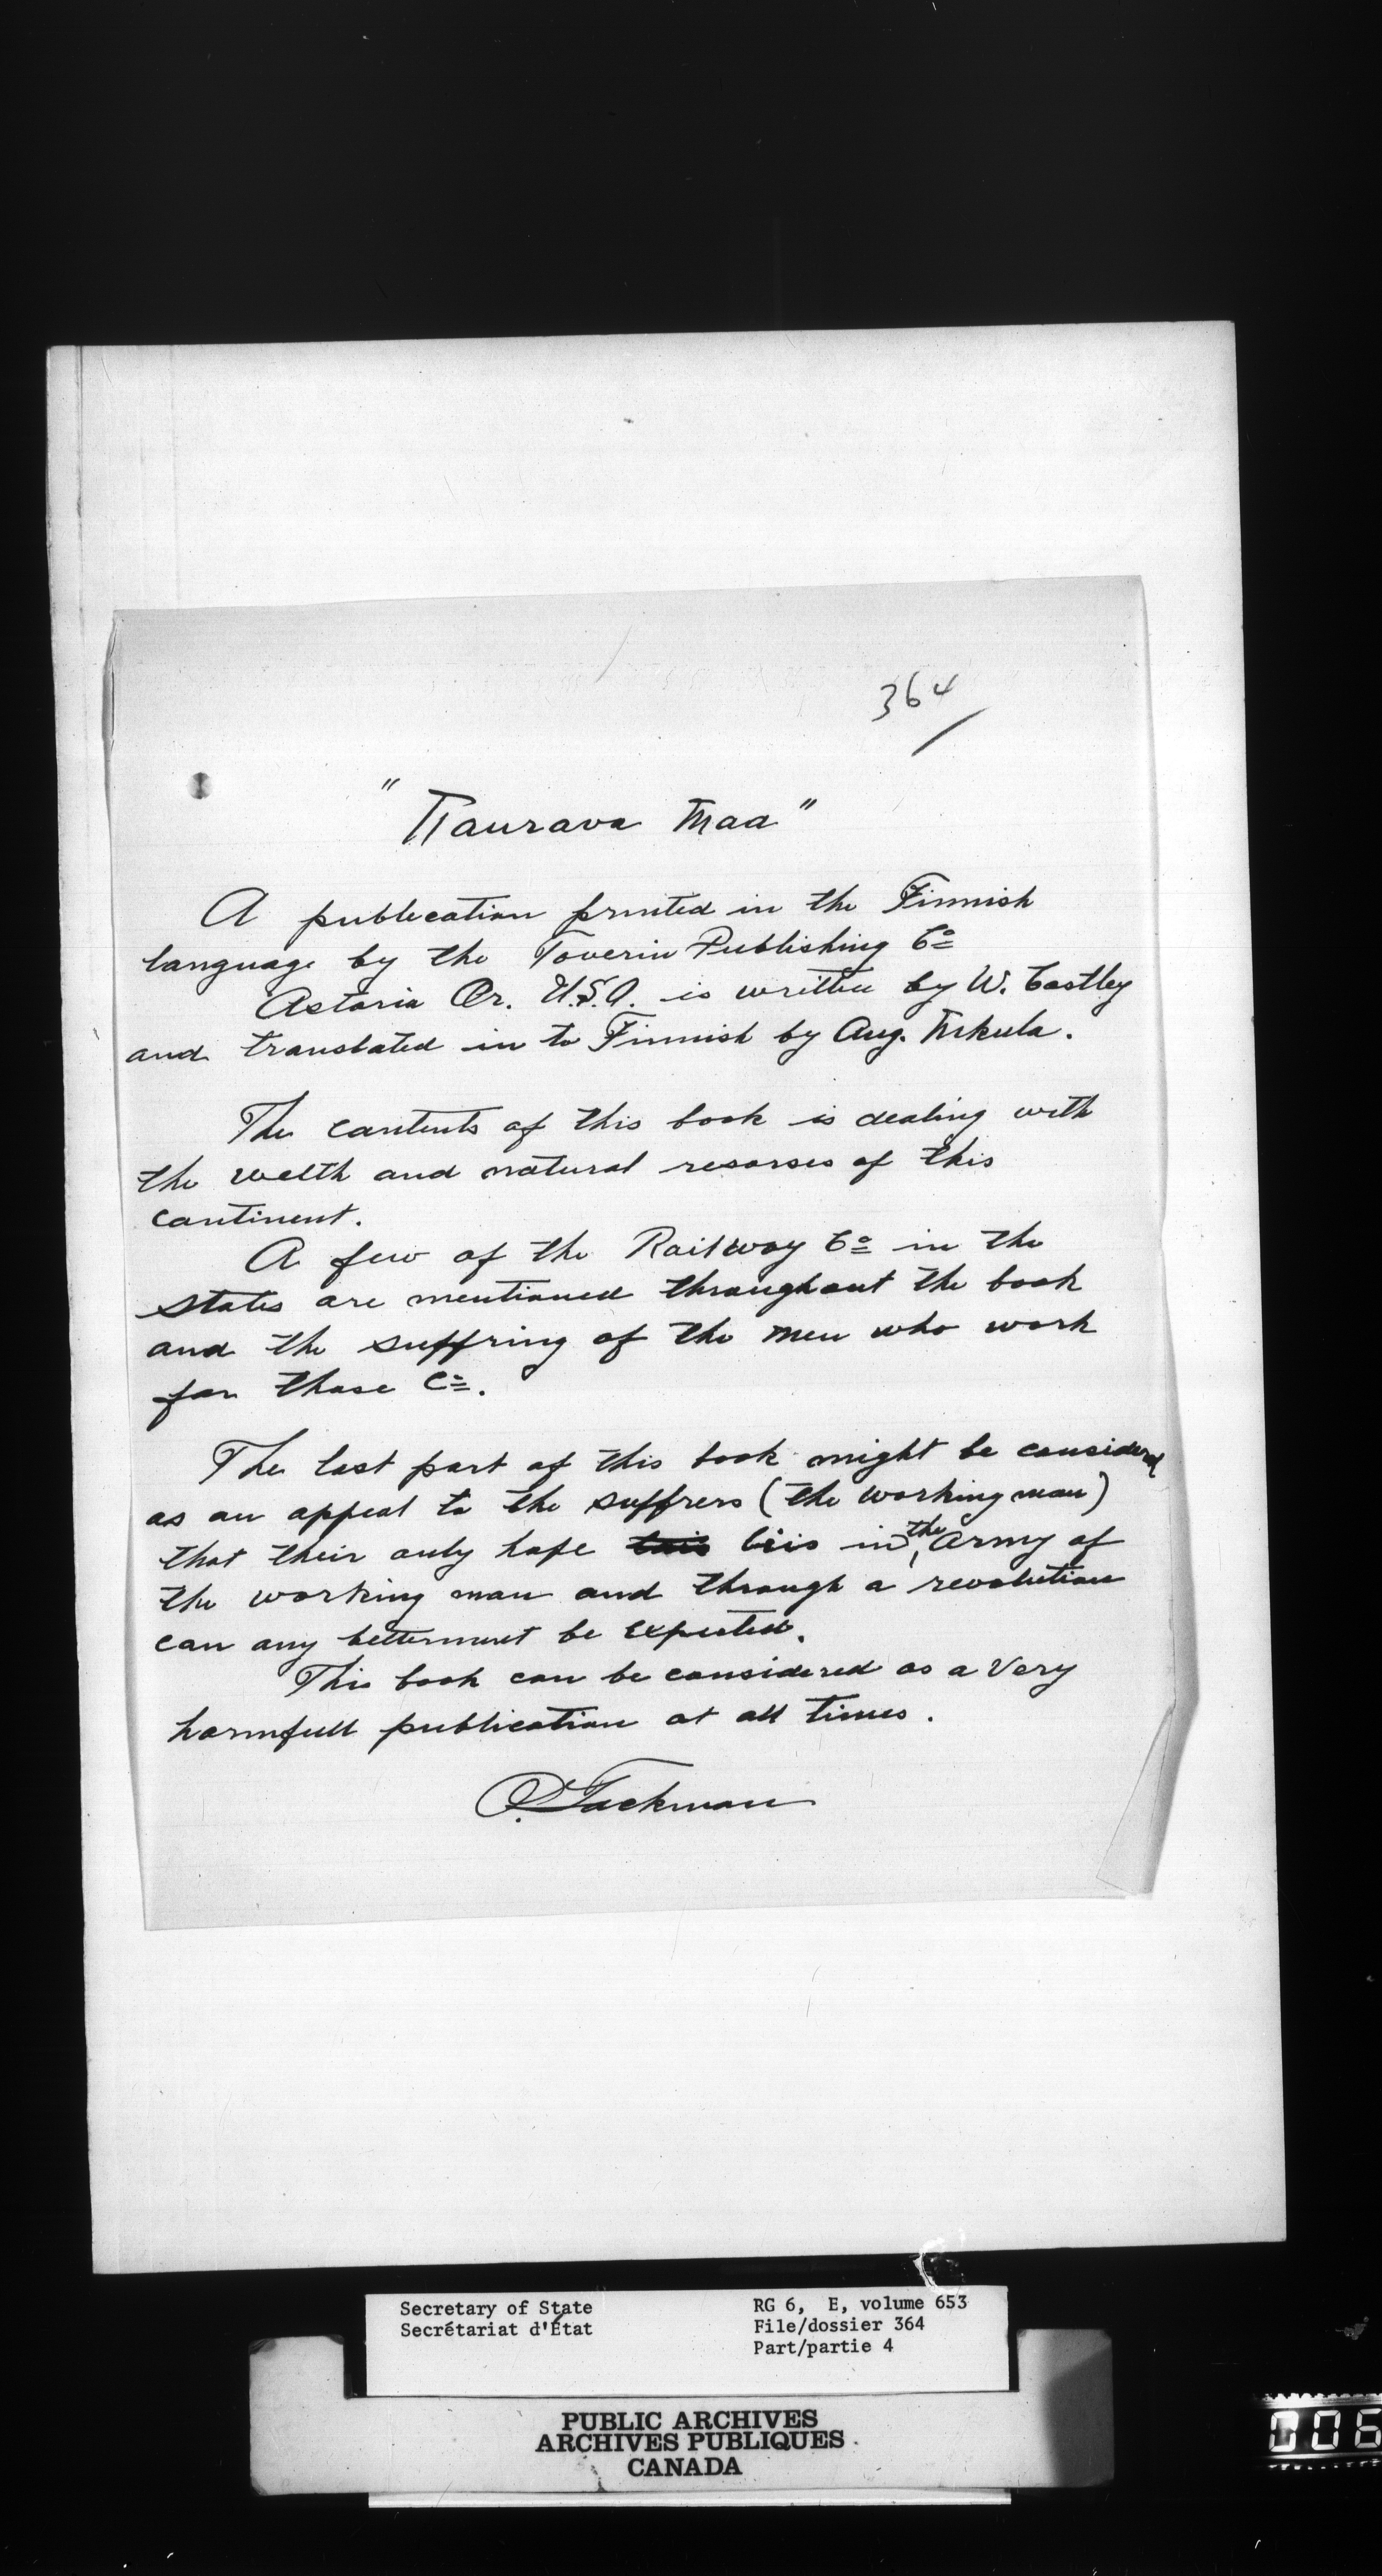 364
"Kaurava Maa"
A publication printed in the Finnish
language by the Toverin Publishing Co
Astoria Or. U.S.A. is written by W. Costley
and translated in to Finnish by Aug.
The contents of this book is dealing with
the welth and natural resorses of this
continent.
A few of the Railway Co in the
states are mentioned throughout the book
and the suffring of the men who work
for those Co.
The last part of this book might be considered
as an appeal to the suffrers (the working man)
that their only hope liis in the Army of
the working man and through a revolution
can any betterment be expected.
This book can be considered as a very
harmfull publication at all times.
Tackman
Secretary of State
Secrétariat d'État
RG 6, E, volume 653
File/dossier 364
Part/partie 4
PUBLIC ARCHIVES
ARCHIVES PUBLIQUES
CANADA
006